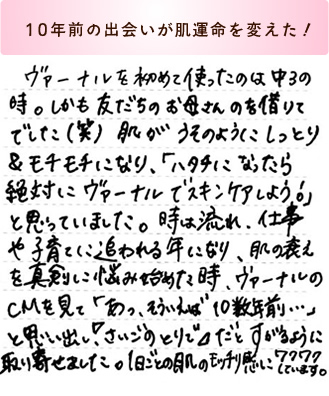 10年前の出会いが肌運命を変えた！
ヴァーナルを初めて使ったのは中3の
時。しかも友だちのお母さんのを借りて
でした(笑) 肌がうそのようにしっとり
&モチモチになり、「ハタチになったら
絶対にヴァーナルでスキンケアしよう!」
と思っていました。時は流れ、仕事
や子育てに追われる年になり、肌の衰え
を真剣に悩み始めた時、ヴァーナルの
CMを見て「あっ、そういえば10数年前…」
と思い出し、「さいごのとりで」だとすがるように
取り寄せました。1日ごとの肌のモッチリ感にワクワク
しています。